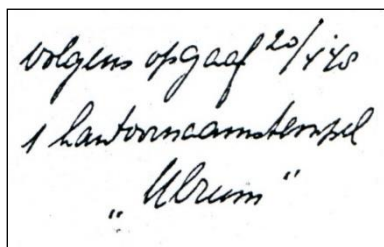 volgens opgaaf 20/4 48
1 kantoornaamstempel
„Ulrum"